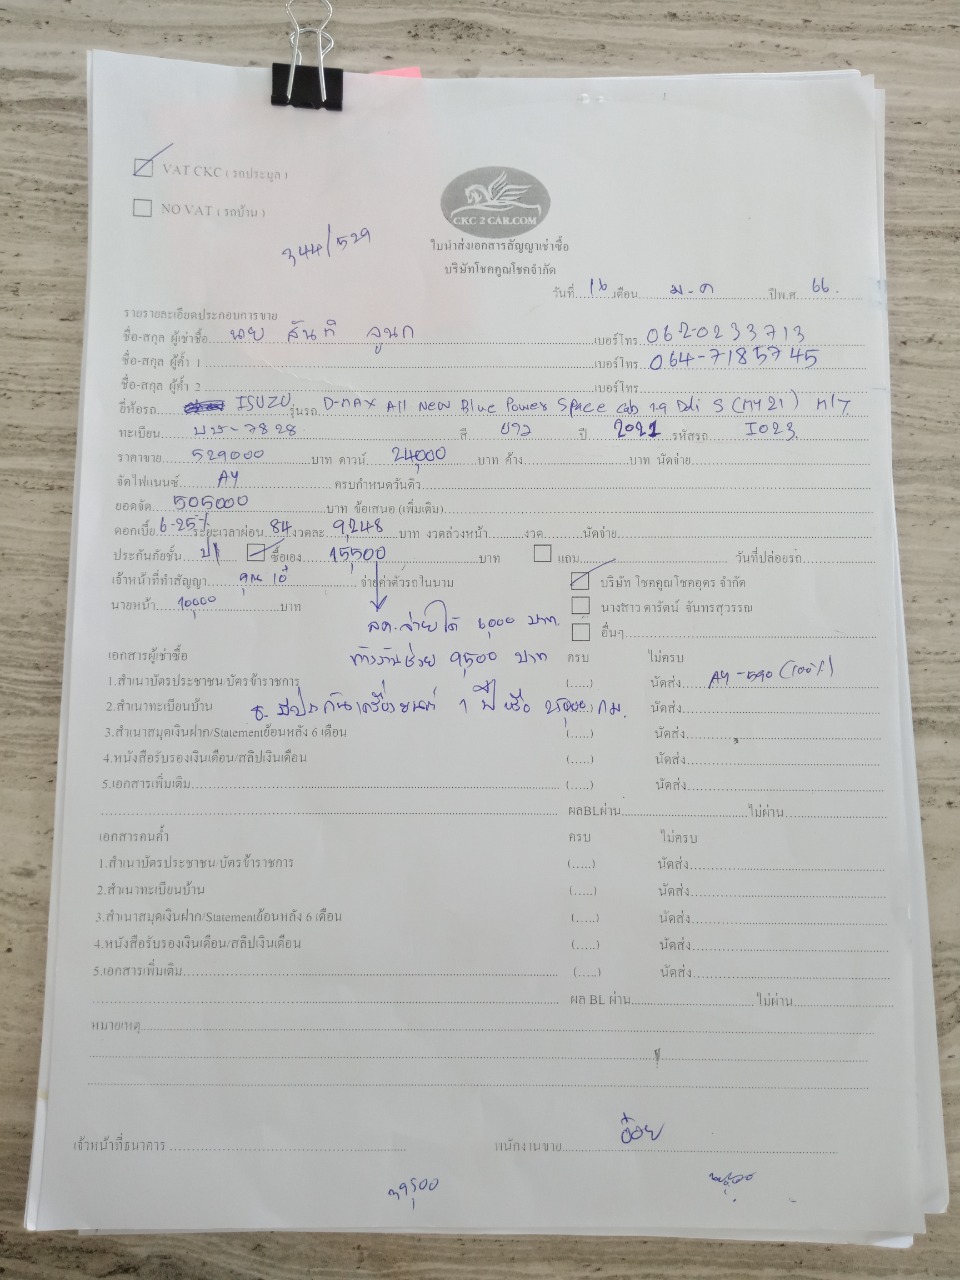 VAT CKC ( รถประมูล )
NO VAT ( รถบ้าน )
344/529
CKC 2 CAR.COM
ใบนำส่งเอกสารสัญญาเช่าซื้อ
บริษัทโชคคูณโชคจำกัด
วันที่ 16 เดือน ม.ค ปีพ.ศ. 66.
รายรายละเอียดประกอบการขาย
ชื่อ-สกุล ผู้เช่าซื้อ นาย สันติ ลูนก เบอร์โทร 062-0233713
ชื่อ-สกุล ผู้ค้ำ 1 เบอร์โทร 064-7185745
ชื่อ-สกุล ผู้ค้ำ 2 เบอร์โทร
ยี่ห้อรถ ISUZU รุ่นรถ D-MAX All New Blue Power Space Cab 1.9 Ddi S (MY21) M/T
ทะเบียน บษ-7828 สี ขาว ปี 2021 รหัสรถ I023
ราคาขาย 529000 บาท ดาวน์ 24,000 บาท ค้าง บาท นัดจ่าย
จัดไฟแนนซ์ AY ครบกำหนดวันคิว
ยอดจัด 505000 บาท ข้อเสนอ (เพิ่มเติม)
ดอกเบี้ย 6.25% ระยะเวลาผ่อน 84 งวดละ 9,248 บาท งวดล่วงหน้า งวด นัดจ่าย
ประกันภัยชั้น ป1 ซื้อเอง 15,500 บาท แถม วันที่ปล่อยรถ
เจ้าหน้าที่ทำสัญญา คุณ เอ๋ จ่ายค่าตัวรถในนาม บริษัท โชคคูณโชคอุดร จำกัด
นายหน้า 10,000 บาท นางสาว ดารัตน์ จันทรสุวรรณ
ลค.จ่ายได้ 6,000 บาท. อื่นๆ
เอกสารผู้เช่าซื้อ ทางร้านช่วย 9,500 บาท ครบ ไม่ครบ
1.สำเนาบัตรประชาชน/บัตรข้าราชการ (.....) นัดส่ง AY-590 (100%)
2.สำเนาทะเบียนบ้าน มีประกันเครื่องยนต์ 1 ปี หรือ 25,000 กม. นัดส่ง
3.สำเนาสมุดเงินฝาก/Statementย้อนหลัง 6 เดือน (.....) นัดส่ง
4.หนังสือรับรองเงินเดือน/สลิปเงินเดือน (.....) นัดส่ง
5.เอกสารเพิ่มเติม (.....) นัดส่ง
ผลBLผ่าน ไม่ผ่าน
เอกสารคนค้ำ ครบ ไม่ครบ
1.สำเนาบัตรประชาชน/บัตรข้าราชการ (.....) นัดส่ง
2.สำเนาทะเบียนบ้าน (.....) นัดส่ง
3.สำเนาสมุดเงินฝาก/Statementย้อนหลัง 6 เดือน (.....) นัดส่ง
4.หนังสือรับรองเงินเดือน/สลิปเงินเดือน (.....) นัดส่ง
5.เอกสารเพิ่มเติม (.....) นัดส่ง
ผล BL ผ่าน ไม่ผ่าน
หมายเหตุ
เจ้าหน้าที่ธนาคาร พนักงานขาย อ๋อย